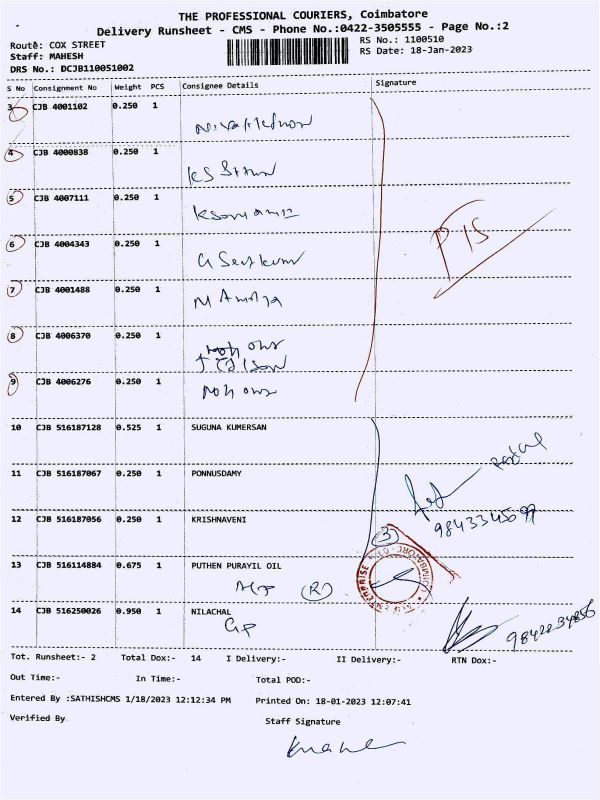 THE PROFESSIONAL COURIERS, Coimbatore
Delivery Runsheet - CMS - Phone No.:0422-3505555 - Page No.:2
Route: COX STREET
RS No.: 1100510
Staff: MAHESH
RS Date: 18-Jan-2023
DRS No.: DCJB110051002
S No Consignment No Weight PCS Consignee Details Signature
3 CJB 4001102 0.250 1
4 CJB 4000838 0.250 1
5 CJB 4007111 0.250 1
6 CJB 4004343 0.250 1
7 CJB 4001488 0.250 1
8 CJB 4006370 0.250 1
9 CJB 4006276 0.250 1
10 CJB 516187128 0.525 1 SUGUNA KUMERSAN
11 CJB 516187067 0.250 1 PONNUSDAMY
12 CJB 516187056 0.250 1 KRISHNAVENI
(3)
13 CJB 516114884 0.675 1 PUTHEN PURAYIL OIL
(R)
14 CJB 516250026 0.950 1 NILACHAL
9842234856
Tot. Runsheet:- 2 Total Dox:- 14 I Delivery:- II Delivery:- RTN Dox:-
Out Time:- In Time:- Total POD:-
Entered By :SATHISHCMS 1/18/2023 12:12:34 PM Printed On: 18-01-2023 12:07:41
Verified By Staff Signature